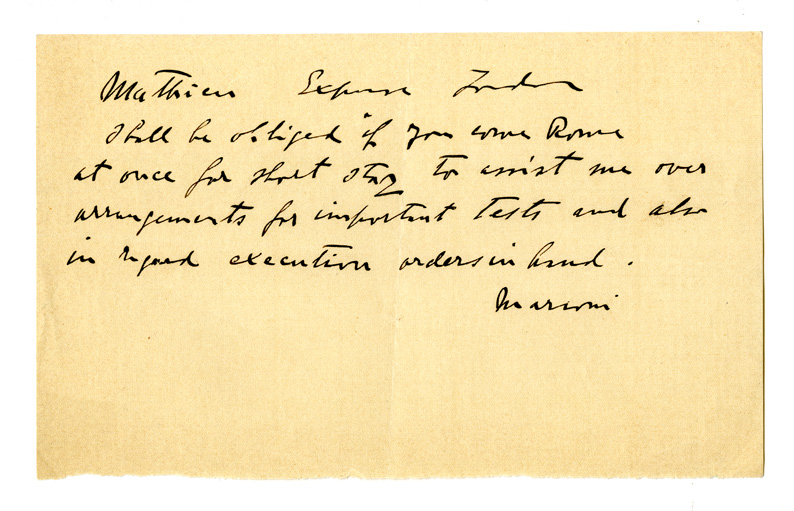 Mathieu Expanse London
Shall be obliged if you come Rome
at once for short stay to assist me over
arrangements for important tests and also
in regard execution orders in hand .
Marconi